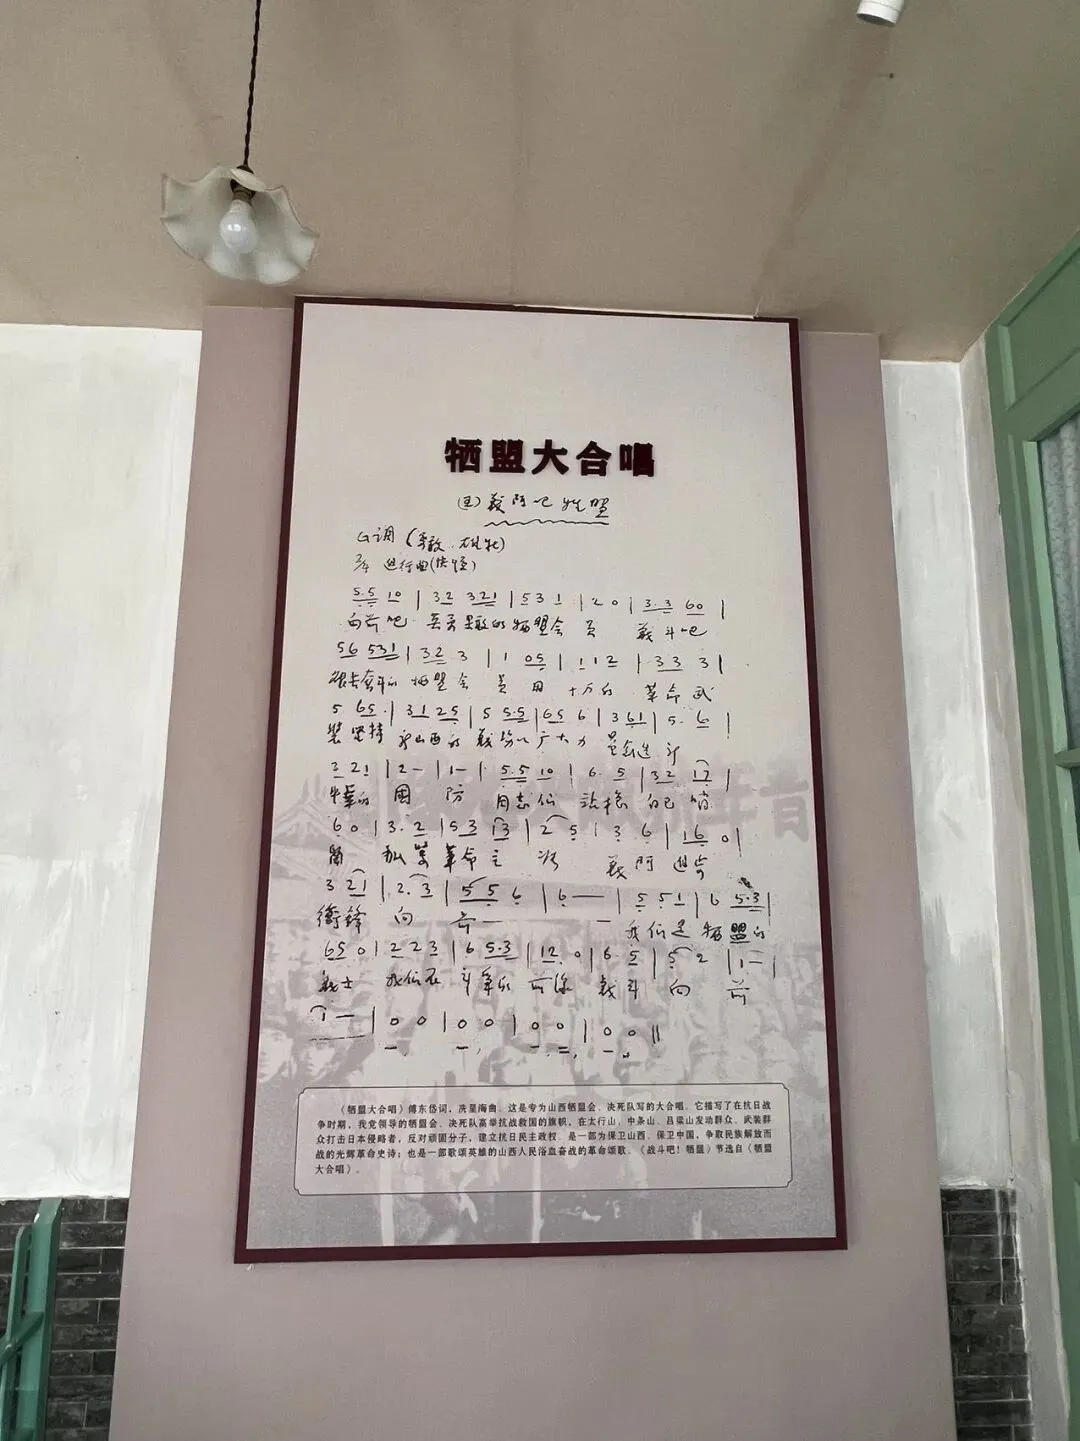 牺盟大合唱
战斗吧牺盟
G调
2/4 进行曲
5.5 10 | 32 321 | 531 | 20 | 3.3 60 |
向前吧 英勇果敢的 牺盟会 员 战斗吧
56 531 | 32 3 | 1 05 | 112 | 33 3 |
牺盟会 员 用 十万的 革命武
5 65. | 31 25 | 5 5.5 | 65 6 | 361 | 5. 6 |
装坚持 山西的 战 广大力 量
3 21 | 2- | 1- | 5.5 10 | 6. 5 | 32 17 |
的 国 防 同志们 自己
60 | 3. 2 | 53 13 | 2 5 | 3 6 | 16 0 |
革命
3 21 | 2. 3 | 5 5 6 | 6 — | 5 51 | 6 5.3 |
冲锋 向 前 — — 我们是 牺盟的
65 0 | 2 23 | 6 5.3 | 12. 0 | 6. 5 | 5 2 | 1— |
战士 我们在 斗争的 前线 战斗 向 前
1 — | 0 0 | 0 0 | 0 0 | 0 0 ||
《牺盟大合唱》傅东岱词，冼星海曲。这是专为山西牺盟会、决死队写的大合唱。它描写了在抗日战
争时期，我党领导的牺盟会、决死队高举抗战救国的旗帜，在太行山、中条山、吕梁山发动群众、武装群
众打击日本侵略者，反对顽固分子，建立抗日民主政权。是一部为保卫山西、保卫中国，争取民族解放而
战的光辉革命史诗；也是一部歌颂英雄的山西人民浴血奋战的革命颂歌。《战斗吧！牺盟》节选自《牺盟
大合唱》。